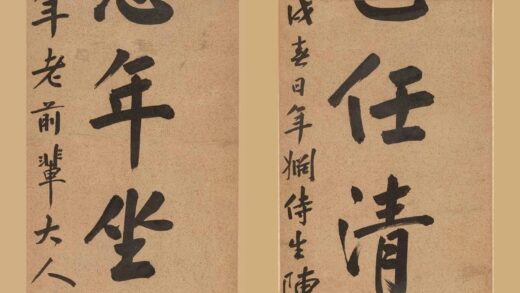 任清
春日年姻侍生陳
年坐
老前輩大人